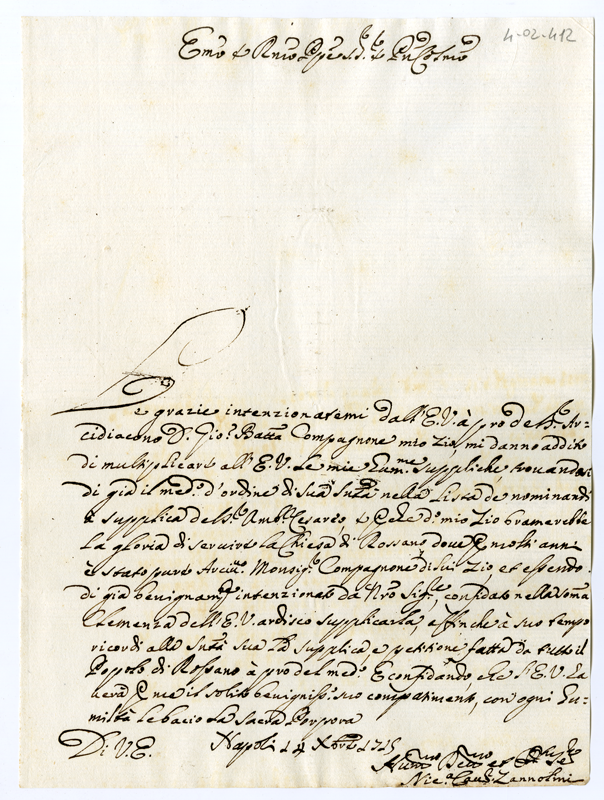 4-02-412
Emo e Rmo Pnpe
Le grazie intenzionatemi dall'E.V. à pro del Sr. Ar-
cidiacono D. Gio: Batta Compagnone mio Zio, mi danno addito
di multiplicare all'E.V. le mie suppliche, trovandosi
di già il med.o d'ordine di Sua Sntà nella lista de nominandi
à supplica del Sr. Amb.r Cesareo, e mio Zio bramerebbe
la gloria di servire la Chiesa di Rossano, dove molti anni
è stato pure Monsig.r Compagnone di lui Zio et essendo
di già benignam.te intenzionato da Nro Sig.re confidato nella somma
Clemenza dell'E.V. ardisco supplicarla, affinche à suo tempo
ricordi alla Sntà Sua la supplica e petitione fatta da tutto il
Popolo di Rossano à pro del med.o E confidando che l'E.V. Ia
me il solito benigniss.o suo compatimento, con ogni hu-
miltà le bacio la Sacra Porpora
Di V.E. Napoli 14 Xbre 1715
Humo Devmo et
Nic.a Zannolini